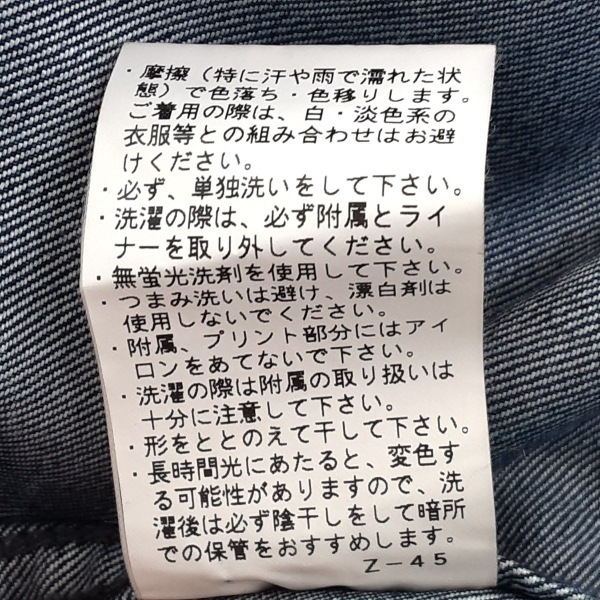 ・摩擦（特に汗や雨で濡れた状
態）で色落ち・色移りします。
ご着用の際は、白・淡色系の
衣服等との組み合わせはお避
けください。
・必ず、単独洗いをして下さい。
・洗濯の際は、必ず附属とライ
ナーを取り外してください。
・無蛍光洗剤を使用して下さい。
・つまみ洗いは避け、漂白剤は
使用しないでください。
・附属、プリント部分にはアイ
ロンをあてないで下さい。
・洗濯の際は附属の取り扱いは
十分に注意して下さい。
・形をととのえて干して下さい。
・長時間光にあたると、変色す
る可能性がありますので、洗
濯後は必ず陰干しをして暗所
での保管をおすすめします。
Z－45